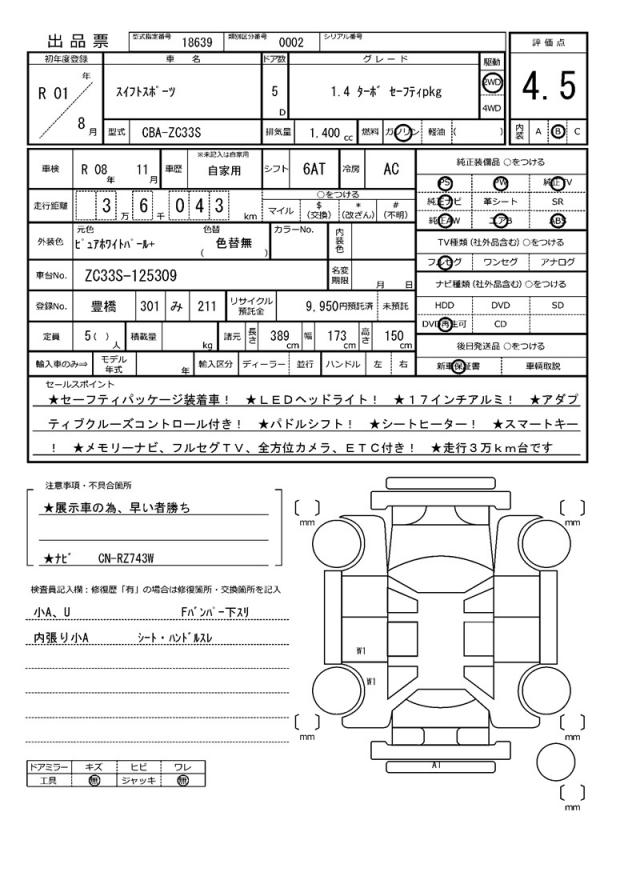 出品票 型式指定番号 18639 類別区分番号 0002 シリアル番号
評価点
初年度登録 車名 ドア数 グレード 駆動
R 01 年 スイフトスポーツ 5 D 1.4 ターボ セーフティpkg 2WD 4.5
8 月 4WD
型式 CBA-ZC33S 排気量 1,400 cc 燃料 ガソリン 軽油 ( ) 内装 A B C
車検 R 08 年 11 月 車歴 ※未記入は自家用 自家用 シフト 6AT 冷房 AC
純正装備品 ○をつける
PS PW 純正TV
純正ナビ 革シート SR
純正AW エアB ABS
走行距離 3 万 6 千 0 4 3 km
○をつける
マイル $ (交換) * (改ざん) # (不明)
外装色 元色 ピュアホワイトパール+ 色替 ( 色替無 ) カラーNo. 内装色
TV種類 (社外品含む) ○をつける
フルセグ ワンセグ アナログ
車台No. ZC33S-125309 名変期限 月 日
ナビ種類 (社外品含む) ○をつける
HDD DVD SD
DVD再生可 CD
登録No. 豊橋 301 み 211 リサイクル預託金 9,950円預託済 未預託
定員 5( ) 人 積載量 kg 諸元 長さ 389 cm 幅 173 cm 高さ 150 cm
後日発送品 ○をつける
新車保証書 車輌取説
輸入車のみ⇒ モデル年式 年 輸入区分 ディーラー 並行 ハンドル 左 右
セールスポイント
★セーフティパッケージ装着車! ★LEDヘッドライト! ★17インチアルミ! ★アダプ
ティブクルーズコントロール付き! ★パドルシフト! ★シートヒーター! ★スマートキー
! ★メモリーナビ、フルセグTV、全方位カメラ、ETC付き! ★走行3万km台です
注意事項・不具合箇所
★展示車の為、早い者勝ち
★ナビ CN-RZ743W
検査員記入欄:修復歴「有」の場合は修復箇所・交換箇所を記入
小A、U Fバンパー下スリ
内張り小A シート・ハンドルスレ
ドアミラー キズ ヒビ ワレ
工具 無 ジャッキ 無
mm mm
W1
W1
mm mm
A1
mm